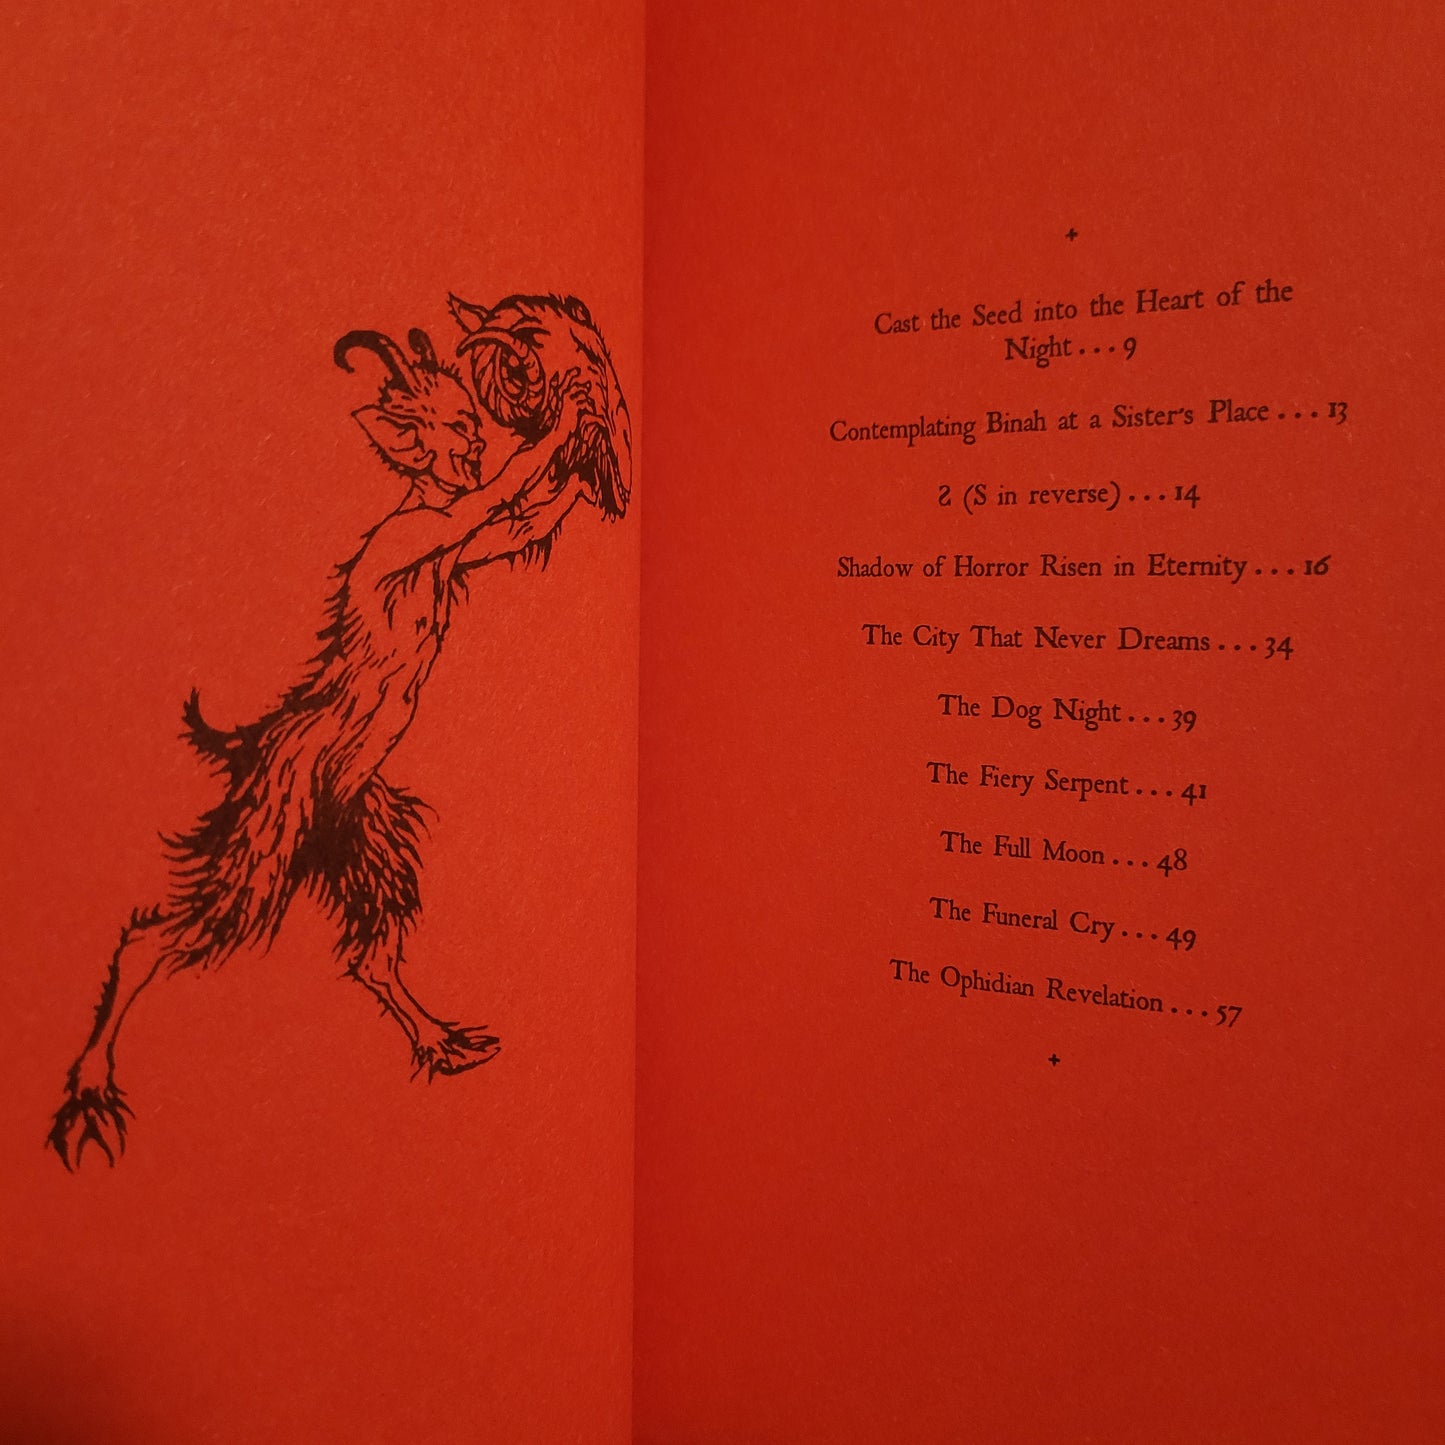 Cast the Seed into the Heart of the
Night...9
Contemplating Binah at a Sister's Place...13
Ƨ (S in reverse)...14
Shadow of Horror Risen in Eternity...16
The City That Never Dreams...34
The Dog Night...39
The Fiery Serpent...41
The Full Moon...48
The Funeral Cry...49
The Ophidian Revelation...57